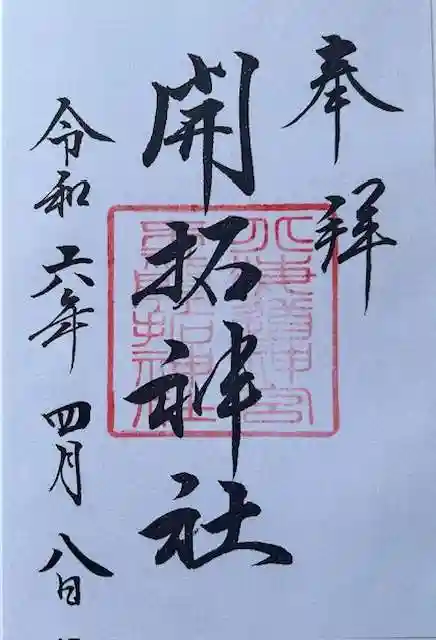 奉拝
開拓神社
北海道神宮
末社開拓神社
令和六年四月八日